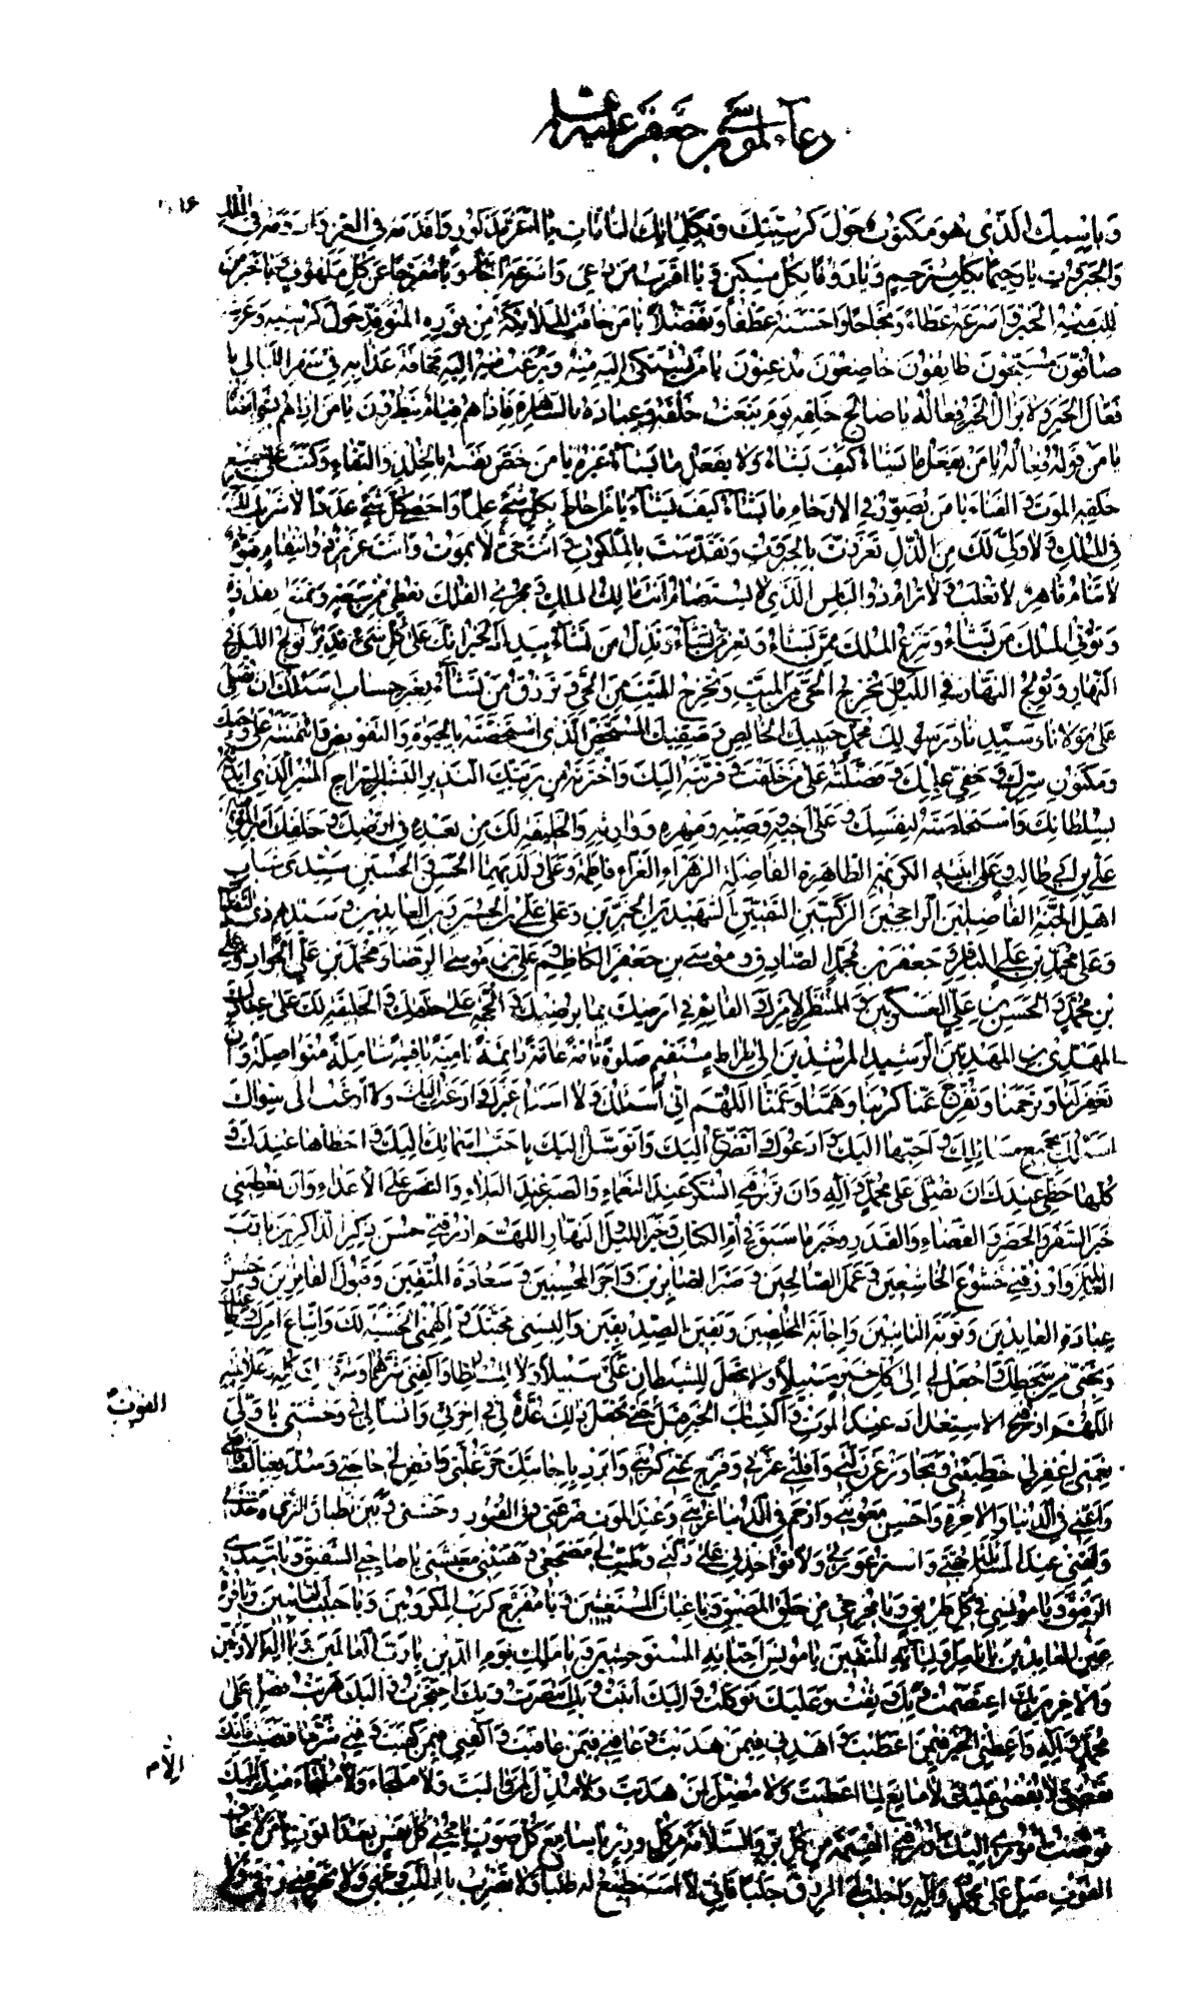 دعاء لموسى بن جعفر عليه السلام
١٦
وباسمك الذي هو مكتوب حول كرسيك وبكلماتك التامات يا اعز مذكور واقدمه في العز
والجبروت يا رحيما بكل مسترحم ويا رؤفا بكل مسكين ويا اقرب من دعي واسرعه اجابة ويا مفرجا عن كل ملهوف يا خير من
طلب منه الخير واسرعه عطاء ونجاحا واحسنه عطفا وتفضلا يا من خافت الملائكة من نوره المتوقد حول كرسيه وعرشه
صافون مسبحون طائفون خاضعون مذعنون يا من يشتكى اليه منه ويرغب منه اليه مخافة عذابه في سهر الليالي يا
فعال الخير ولا يزال الخير فعاله يا صالح خلقه يوم يبعث خلقه وعباده بالساهرة فاذا هم قيام ينظرون يا من اذا هم بشيء امضاه
يا من قوله فعاله يا من يفعل ما يشاء كيف يشاء ولا يفعل ما يشاء غيره يا من خص نفسه بالخلد والبقاء وكتب على جميع
خلقه الموت والفناء يا من يصور في الارحام ما يشاء كيف يشاء يا من احاط بكل شيء علما واحصى كل شيء عددا لا شريك لك
في الملك ولا ولي لك من الذل تعززت بالجبروت وتقدست بالملكوت وانت حي لا يموت وانت عزيز ذو انتقام قيوم
لا تنام قاهر لا تغلب ولا ترام ذو البأس الذي لا يستضام انت مالك الملك ومجري الفلك تعطي من سعة وتمنع بقدرة
وتؤتي الملك من تشاء وتنزع الملك ممن تشاء وتعز من تشاء وتذل من تشاء بيدك الخير انك على كل شيء قدير تولج الليل في
النهار وتولج النهار في الليل وتخرج الحي من الميت وتخرج الميت من الحي وترزق من تشاء بغير حساب اسئلك ان تصلي
على مولانا وسيدنا ورسولك محمد حبيبك الخالص وصفيك المستخص الذي استخصصته بالحيوة والتفويض وائتمنته على وحيك
ومكنون سرك وخفي علمك وفضلته على من خلقت وقربته اليك واخترته من بريتك النذير البشير السراج المنير الذي ايدته
بسلطانك واستخلصته لنفسك وعلى اخيه ووصيه وصهره ووارثه والخليفة لك من بعده في ارضك وخلقك امير المؤمنين
علي بن ابي طالب وعلى ابنته الكريمة الطاهرة الفاضلة الزهراء الغراء فاطمة وعلى ولديهما الحسن والحسين سيدي شباب
اهل الجنة الفاضلين الراجحين الزكيين التقيين الشهيدين الخيرين وعلى علي بن الحسين زين العابدين وسيدهم ذي الثفنات
وعلى محمد بن علي الباقر وجعفر بن محمد الصادق وموسى بن جعفر الكاظم وعلي بن موسى الرضا ومحمد بن علي الجواد وعلي
بن محمد والحسن بن علي العسكريين والمنتظر لامرك والقائم في ارضك بما يرضيك والحجة على خلقك والخليفة لك على عبادك
المهدي بن المهديين الرشيد المرشدين الى صراط مستقيم صلوة تامة عامة دائمة نامية باقية شاملة متواصلة وان
تغفر لنا وترحمنا وتفرج عنا كربنا وهمنا وغمنا اللهم اني اسئلك ولا اسئل غيرك وارغب اليك ولا ارغب الى سواك
اسئلك بجميع مسائلك واحبها اليك وادعوك واتضرع اليك واتوسل اليك باحب اسمائك اليك واحظاها عندك و
كلها حظي عندك ان تصلي على محمد وآله وان ترزقني الشكر عند النعماء والصبر عند البلاء والنصر على الاعداء وان تعطيني
خير السفر والحضر والقضاء والقدر وخير ما سبق في ام الكتاب وخير الليل والنهار اللهم ارزقني حسن ذكر الذاكرين يا رب
العالمين وارزقني خشوع الخاشعين وعمل الصالحين وصبر الصابرين واجر المحسنين وسعادة المتقين وقبول الفائزين وحسن
عبادة العابدين وتوبة التائبين واجابة المخلصين ويقين الصديقين والبسني محبتك والهمني الخشية لك واتباع امرك وطاعتك
ونجني من سخطك واجعل لي الى كل خير سبيلا ولا تجعل للشيطان علي سبيلا ولا للسلطان واكفني شرهما وشر ذلك كله وعلانيته
اللهم ارزقني الاستعداد عند الموت واكتساب الخير قبل الفوت حتى تجعل ذلك عدة لي في اخرتي وانسا لي في وحشتي يا وليي
الفوت
في نعمتي اغفر لي خطيئتي وتجاوز عن زلتي واقلني عثرتي وفرج عني كربتي وابرد باجابتك حر غلتي واقض لي حاجتي وسد بغناك فاقتي
واعني في الدنيا والاخرة واحسن معونتي وارحم في الدنيا غربتي وعند الموت صرعتي وفي القبور وحشتي وبين اطباق الثرى وحدتي
ولقني عند المسائلة حجتي واستر عورتي ولا تؤاخذني على زلتي وطيب لي مضجعي وهنئني معيشتي يا صاحبي الشفيق ويا سيدي
الرفيق ويا مونسي في كل طريق ويا مخرجي من حلق المضيق ويا غياث المستغيثين ويا مفرج كرب المكروبين ويا حبيب التائبين ويا قرة
عين العابدين يا ناصر اوليائه المتقين يا مونس احبائه المستوحشين ويا ملك يوم الدين يا رب العالمين ويا اله الاولين
والاخرين بك اعتصمت وبك وثقت وعليك توكلت واليك انبت وبك انتصرت وبك احتجزت واليك هربت فصل على
محمد وآله واعطني الخير فيمن اعطيت واهدني فيمن هديت وعافني فيمن عافيت واكفني فيمن كفيت وقني شر ما قضيت فانك
تقضي ولا يقضى عليك لا مانع لما اعطيت ولا مضل لمن هديت ولا مذل لمن واليت ولا ملجأ ولا ملتجأ منك الا اليك
الأم
فوضت امري اليك وارزقني الغنيمة من كل بر والسلامة من كل وزر يا سامع كل صوت يا محيي كل نفس بعد الموت يا من لا يخاف
الفوت صل على محمد وآله واجلب لي الرزق جلبا فاني لا استطيع له طلبا ولا تضرب بالطلب وجهي ولا تحرمني رزقي ولا